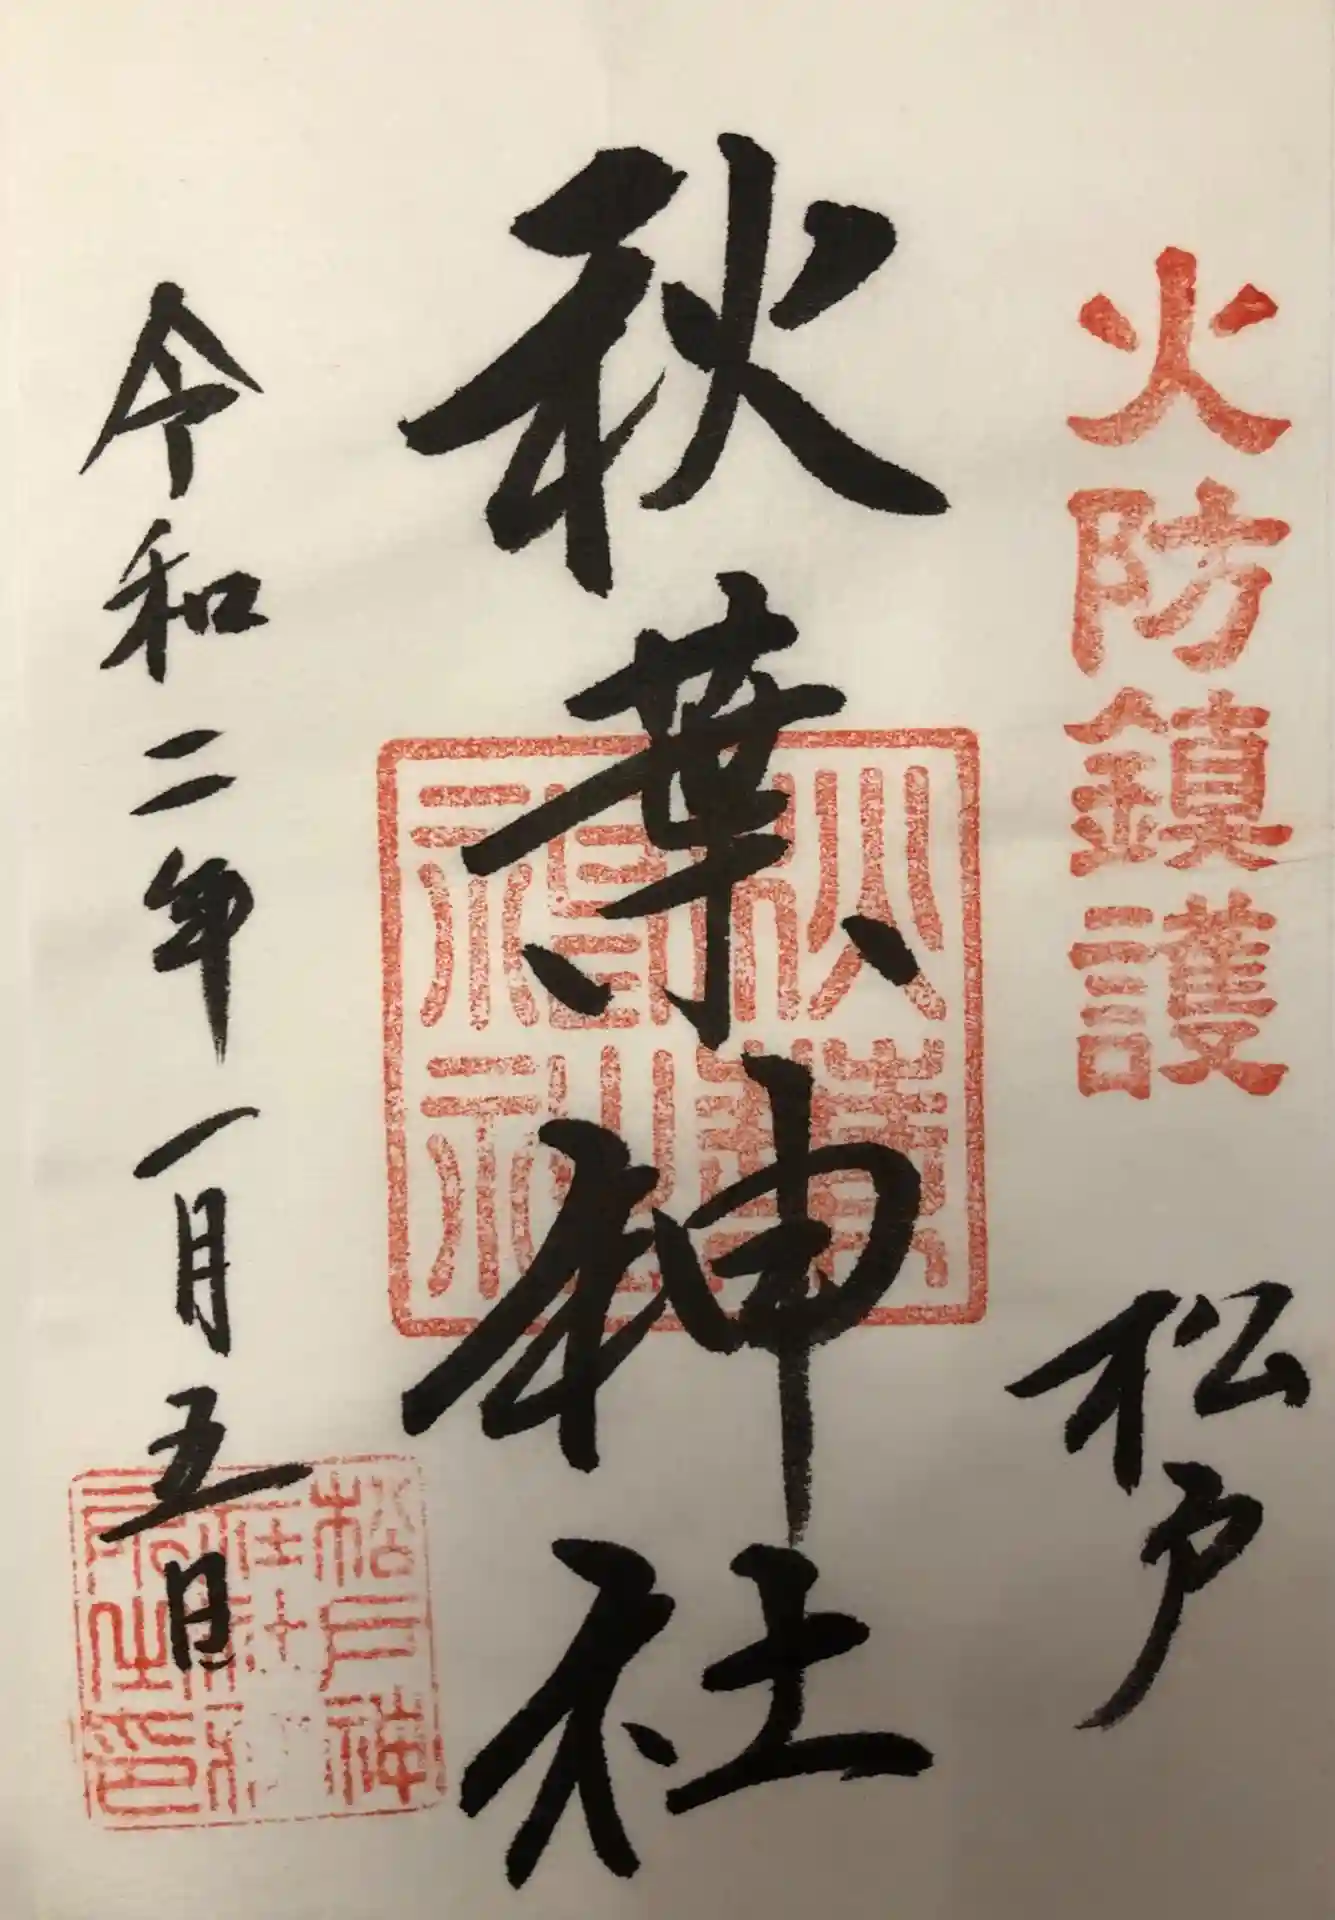 火防鎮護
松戸
秋葉神社
秋葉
神社
令和二年一月五日
松戸神
社
印